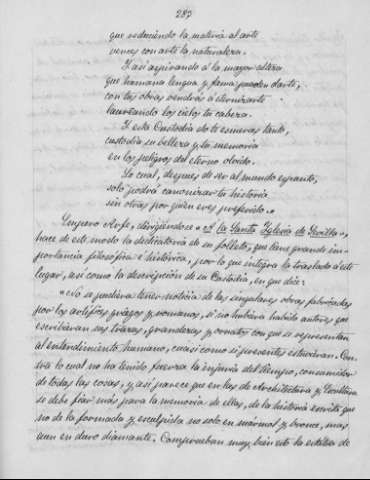 287
que reduciendo la materia al arte
vences con arte la naturaleza.
Y así aspirando á la mayor alteza
que humana lengua y fama pueden darte,
con tus obras vendrás á eternizarte
laureando los cielos tu cabeza.
Y esta Custodia do te esmeras tanto,
custodia su belleza y tu memoria
en los peligros del eterno olvido.
Lo cual, despues de ser al mundo espanto,
solo podrá canonizar tu historia
sin otras por quien eres preferido.»
Empero Arfe, dirigiendose «A la Santa Yglesia de Sevilla»,
hace de este modo la dedicatoria de su folleto, que tiene grande im-
portancia filosófica é histórica, por lo que integra la traslado á este
lugar, así como la descripcion de su Custodia, en que dice:
«No se pudiera tener noticia de las singulares obras fabricadas
por los artífices griegos y romanos, si no hubiera habido autores que
escribieran sus trazas, grandezas y ornatos con que se representan
al entendimiento humano, cuasi como si presentes estuvieran. Con-
tra lo cual no ha tenido fuerza la injuria del tiempo, consumidor
de todas las cosas, y así parece que en las de Architectura y Escultura
se debe fiar más para la memoria de ellas, de la historia escrita que
no de la formada y esculpida no solo en marmol y bronce, mas
aun en duro diamante. Comprueban muy bien esto la estatua de